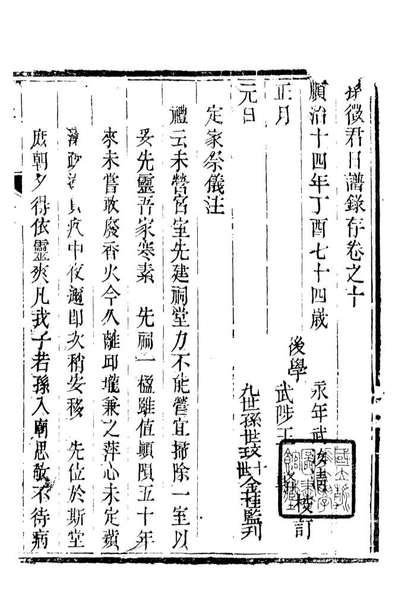 孫徵君日譜錄存卷之十
後學 永年武 校訂
武陟王
順治十四年丁酉七十四歲 九世孫世玟 監刊
正月
元日
定家祭儀注
禮云未營宮室先建祠堂力不能營宜掃除一室以
妥先靈吾家寒素 先祠一楹雖值頓隕五十年
來未嘗敢廢香火今久離邱壠兼之萍心未定蘋
中夜 卽次稍安移 先位於斯堂
庶朝夕得依靈爽凡我子若孫入廟思敬不待病